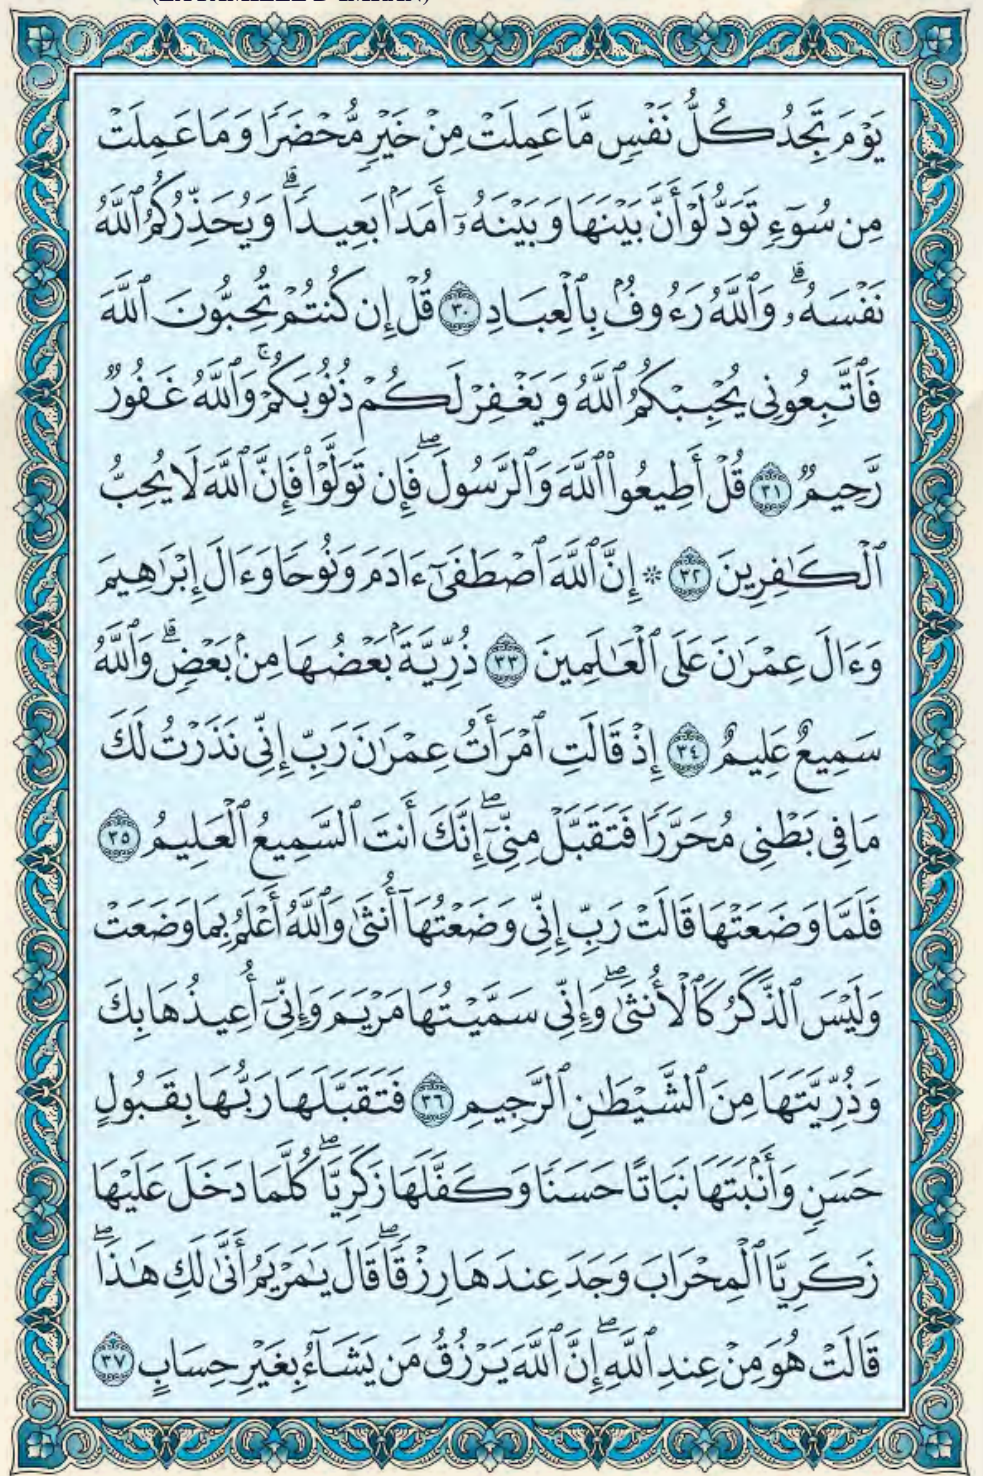 يَوْمَ تَجِدُ كُلُّ نَفْسٍ مَّا عَمِلَتْ مِنْ خَيْرٍ مُّحْضَرًا وَمَا عَمِلَتْ
مِن سُوٓءٍ تَوَدُّ لَوْ أَنَّ بَيْنَهَا وَبَيْنَهُۥٓ أَمَدًۢا بَعِيدًاۗ وَيُحَذِّرُكُمُ ٱللَّهُ
نَفْسَهُۥۗ وَٱللَّهُ رَءُوفُۢ بِٱلْعِبَادِ ٣٠ قُلْ إِن كُنتُمْ تُحِبُّونَ ٱللَّهَ
فَٱتَّبِعُونِى يُحْبِبْكُمُ ٱللَّهُ وَيَغْفِرْ لَكُمْ ذُنُوبَكُمْۚ وَٱللَّهُ غَفُورٌ
رَّحِيمٌ ٣١ قُلْ أَطِيعُوا۟ ٱللَّهَ وَٱلرَّسُولَۖ فَإِن تَوَلَّوْا۟ فَإِنَّ ٱللَّهَ لَا يُحِبُّ
ٱلْكَـٰفِرِينَ ٣٢ ۞ إِنَّ ٱللَّهَ ٱصْطَفَىٰٓ ءَادَمَ وَنُوحًا وَءَالَ إِبْرَٰهِيمَ
وَءَالَ عِمْرَٰنَ عَلَى ٱلْعَـٰلَمِينَ ٣٣ ذُرِّيَّةَۢ بَعْضُهَا مِنۢ بَعْضٍۗ وَٱللَّهُ
سَمِيعٌ عَلِيمٌ ٣٤ إِذْ قَالَتِ ٱمْرَأَتُ عِمْرَٰنَ رَبِّ إِنِّى نَذَرْتُ لَكَ
مَا فِى بَطْنِى مُحَرَّرًا فَتَقَبَّلْ مِنِّىٓۖ إِنَّكَ أَنتَ ٱلسَّمِيعُ ٱلْعَلِيمُ ٣٥
فَلَمَّا وَضَعَتْهَا قَالَتْ رَبِّ إِنِّى وَضَعْتُهَآ أُنثَىٰ وَٱللَّهُ أَعْلَمُ بِمَا وَضَعَتْ
وَلَيْسَ ٱلذَّكَرُ كَٱلْأُنثَىٰۖ وَإِنِّى سَمَّيْتُهَا مَرْيَمَ وَإِنِّىٓ أُعِيذُهَا بِكَ
وَذُرِّيَّتَهَا مِنَ ٱلشَّيْطَـٰنِ ٱلرَّجِيمِ ٣٦ فَتَقَبَّلَهَا رَبُّهَا بِقَبُولٍ
حَسَنٍ وَأَنۢبَتَهَا نَبَاتًا حَسَنًا وَكَفَّلَهَا زَكَرِيَّاۖ كُلَّمَا دَخَلَ عَلَيْهَا
زَكَرِيَّا ٱلْمِحْرَابَ وَجَدَ عِندَهَا رِزْقًاۖ قَالَ يَـٰمَرْيَمُ أَنَّىٰ لَكِ هَـٰذَاۖ
قَالَتْ هُوَ مِنْ عِندِ ٱللَّهِۖ إِنَّ ٱللَّهَ يَرْزُقُ مَن يَشَآءُ بِغَيْرِ حِسَابٍ ٣٧